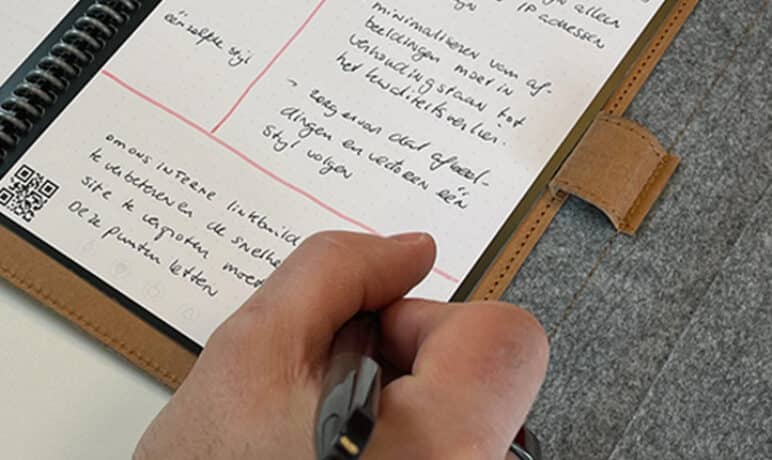 éénzelfde stijl
allen
IP adressen
minimaliseren van af-
beeldingen moet in
verhouding staan tot
het kwaliteitsverlies.
→ zorg ervan dat afbeel-
dingen en vectoren één
stijl volgen
om ons interne linkbuild
te verbeteren en de snelhe
site te vergroten moe
Deze punten letten